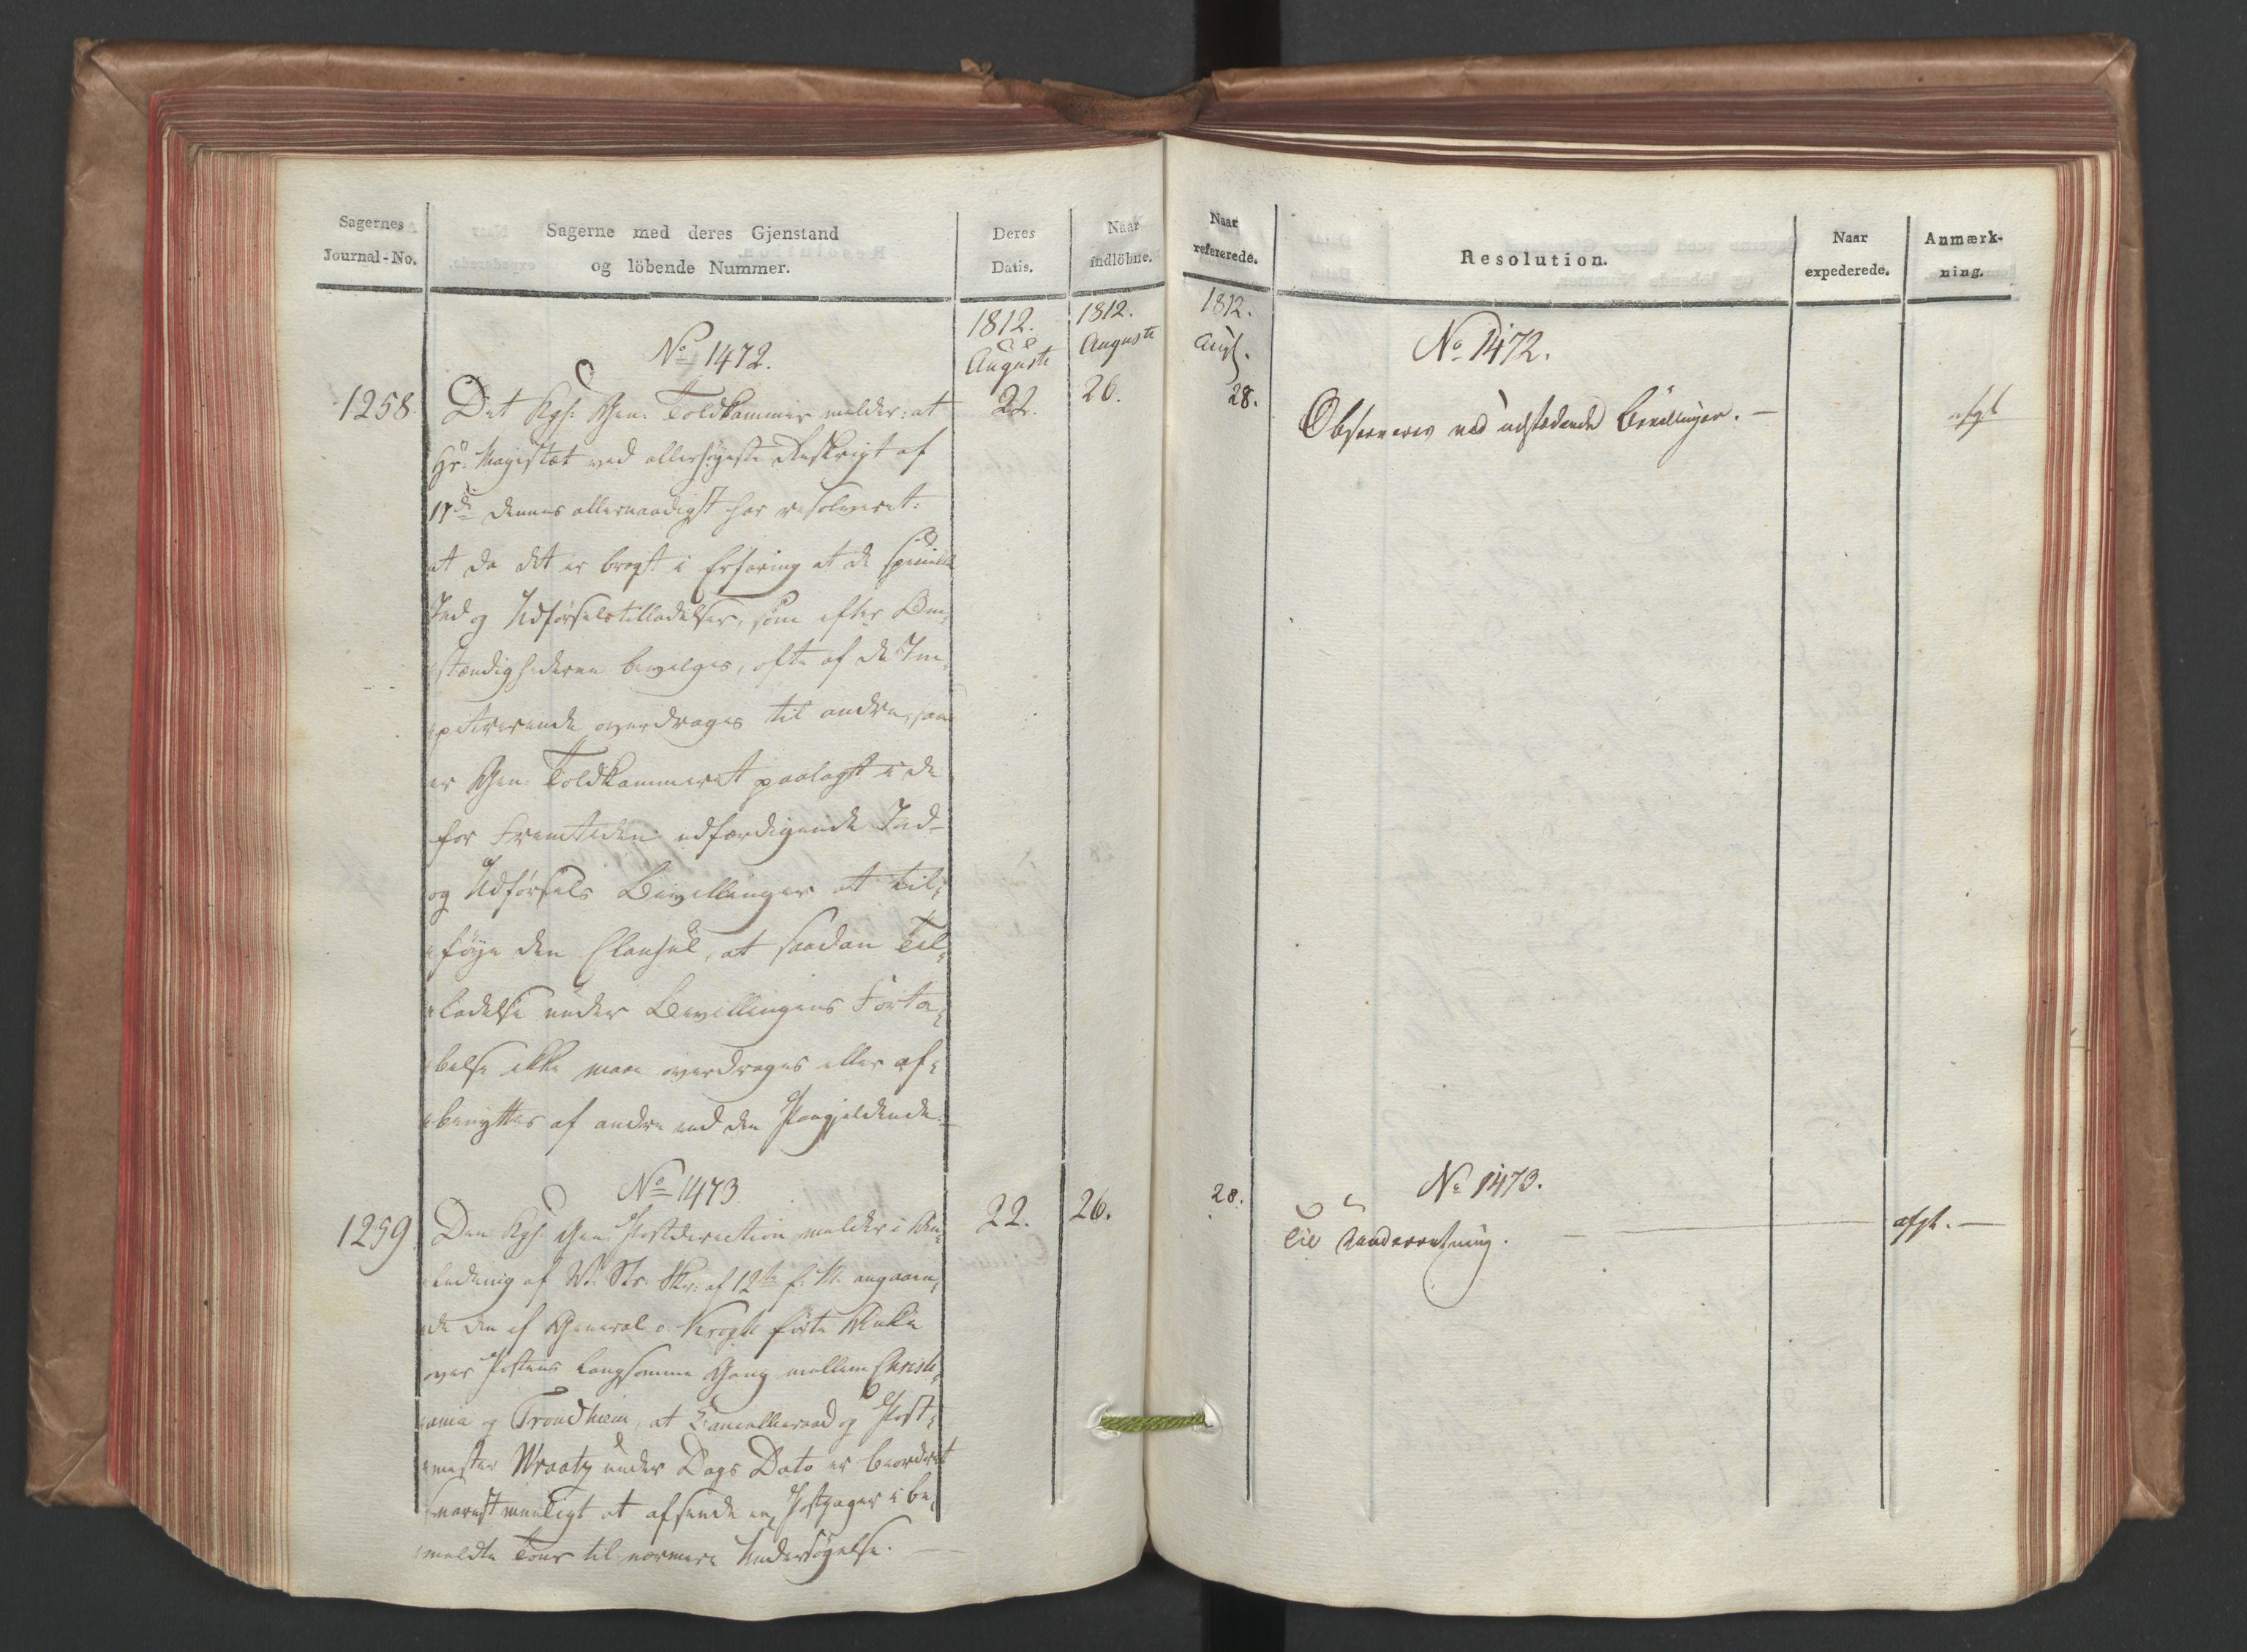 Sagernes
Journal-No.
Sagerne med deres Gjenstand
og löbende Nummer.
Deres
Datis.
Naar
indlöbne.
1812.
Auguste
1812.
Auguste
No 1472.
1258.
Det Kgl: Gen: Toldkammer melder: at
22.
26.
Hs: Majestæt ved allerhøyeste Reskript af
17de dennes allernaadigst har resolveret:
at da det er bragt i Erfaring at de specielle
Ind og Udførselstilladelser, som efter Om-
stændighederne bevilges, ofte af de Im-
petrerende overdrages til andre, saa
er Gen: Toldkammeret paalagt i de
for Fremtiden udfærdigende Ind-
og Udførsels Bevillinger at til-
føye den Clausul, at saadan Til-
ladelse under Bevillingens Forta-
belse ikke maa overdrages eller af-
benyttes af andre end den Paagjeldende.
No 1473.
1259
Den Kgl: Gen: Postdirection melder i An-
22.
26.
ledning af St: Skr: af 12te f: M: angaaen-
de den af General v Krogh førte Anke
over Postens langsomme Gang mellem Christi-
ania og Trondhiem, at Cancelliraad og Post-
mester Wraatz under Dags Dato er beordret
snarest mueligt at afsende en Postpager i be-
meldte Tour til nærmere Undersøgelse. —
Naar
refererede.
Resolution.
Naar
expederede.
Anmærk-
ning.
1812.
Augt.
No 1472.
28.
Observeres ved udstedende Bevillinger. —
afgt
No 1473.
28.
Til Underretning.
afgt. —